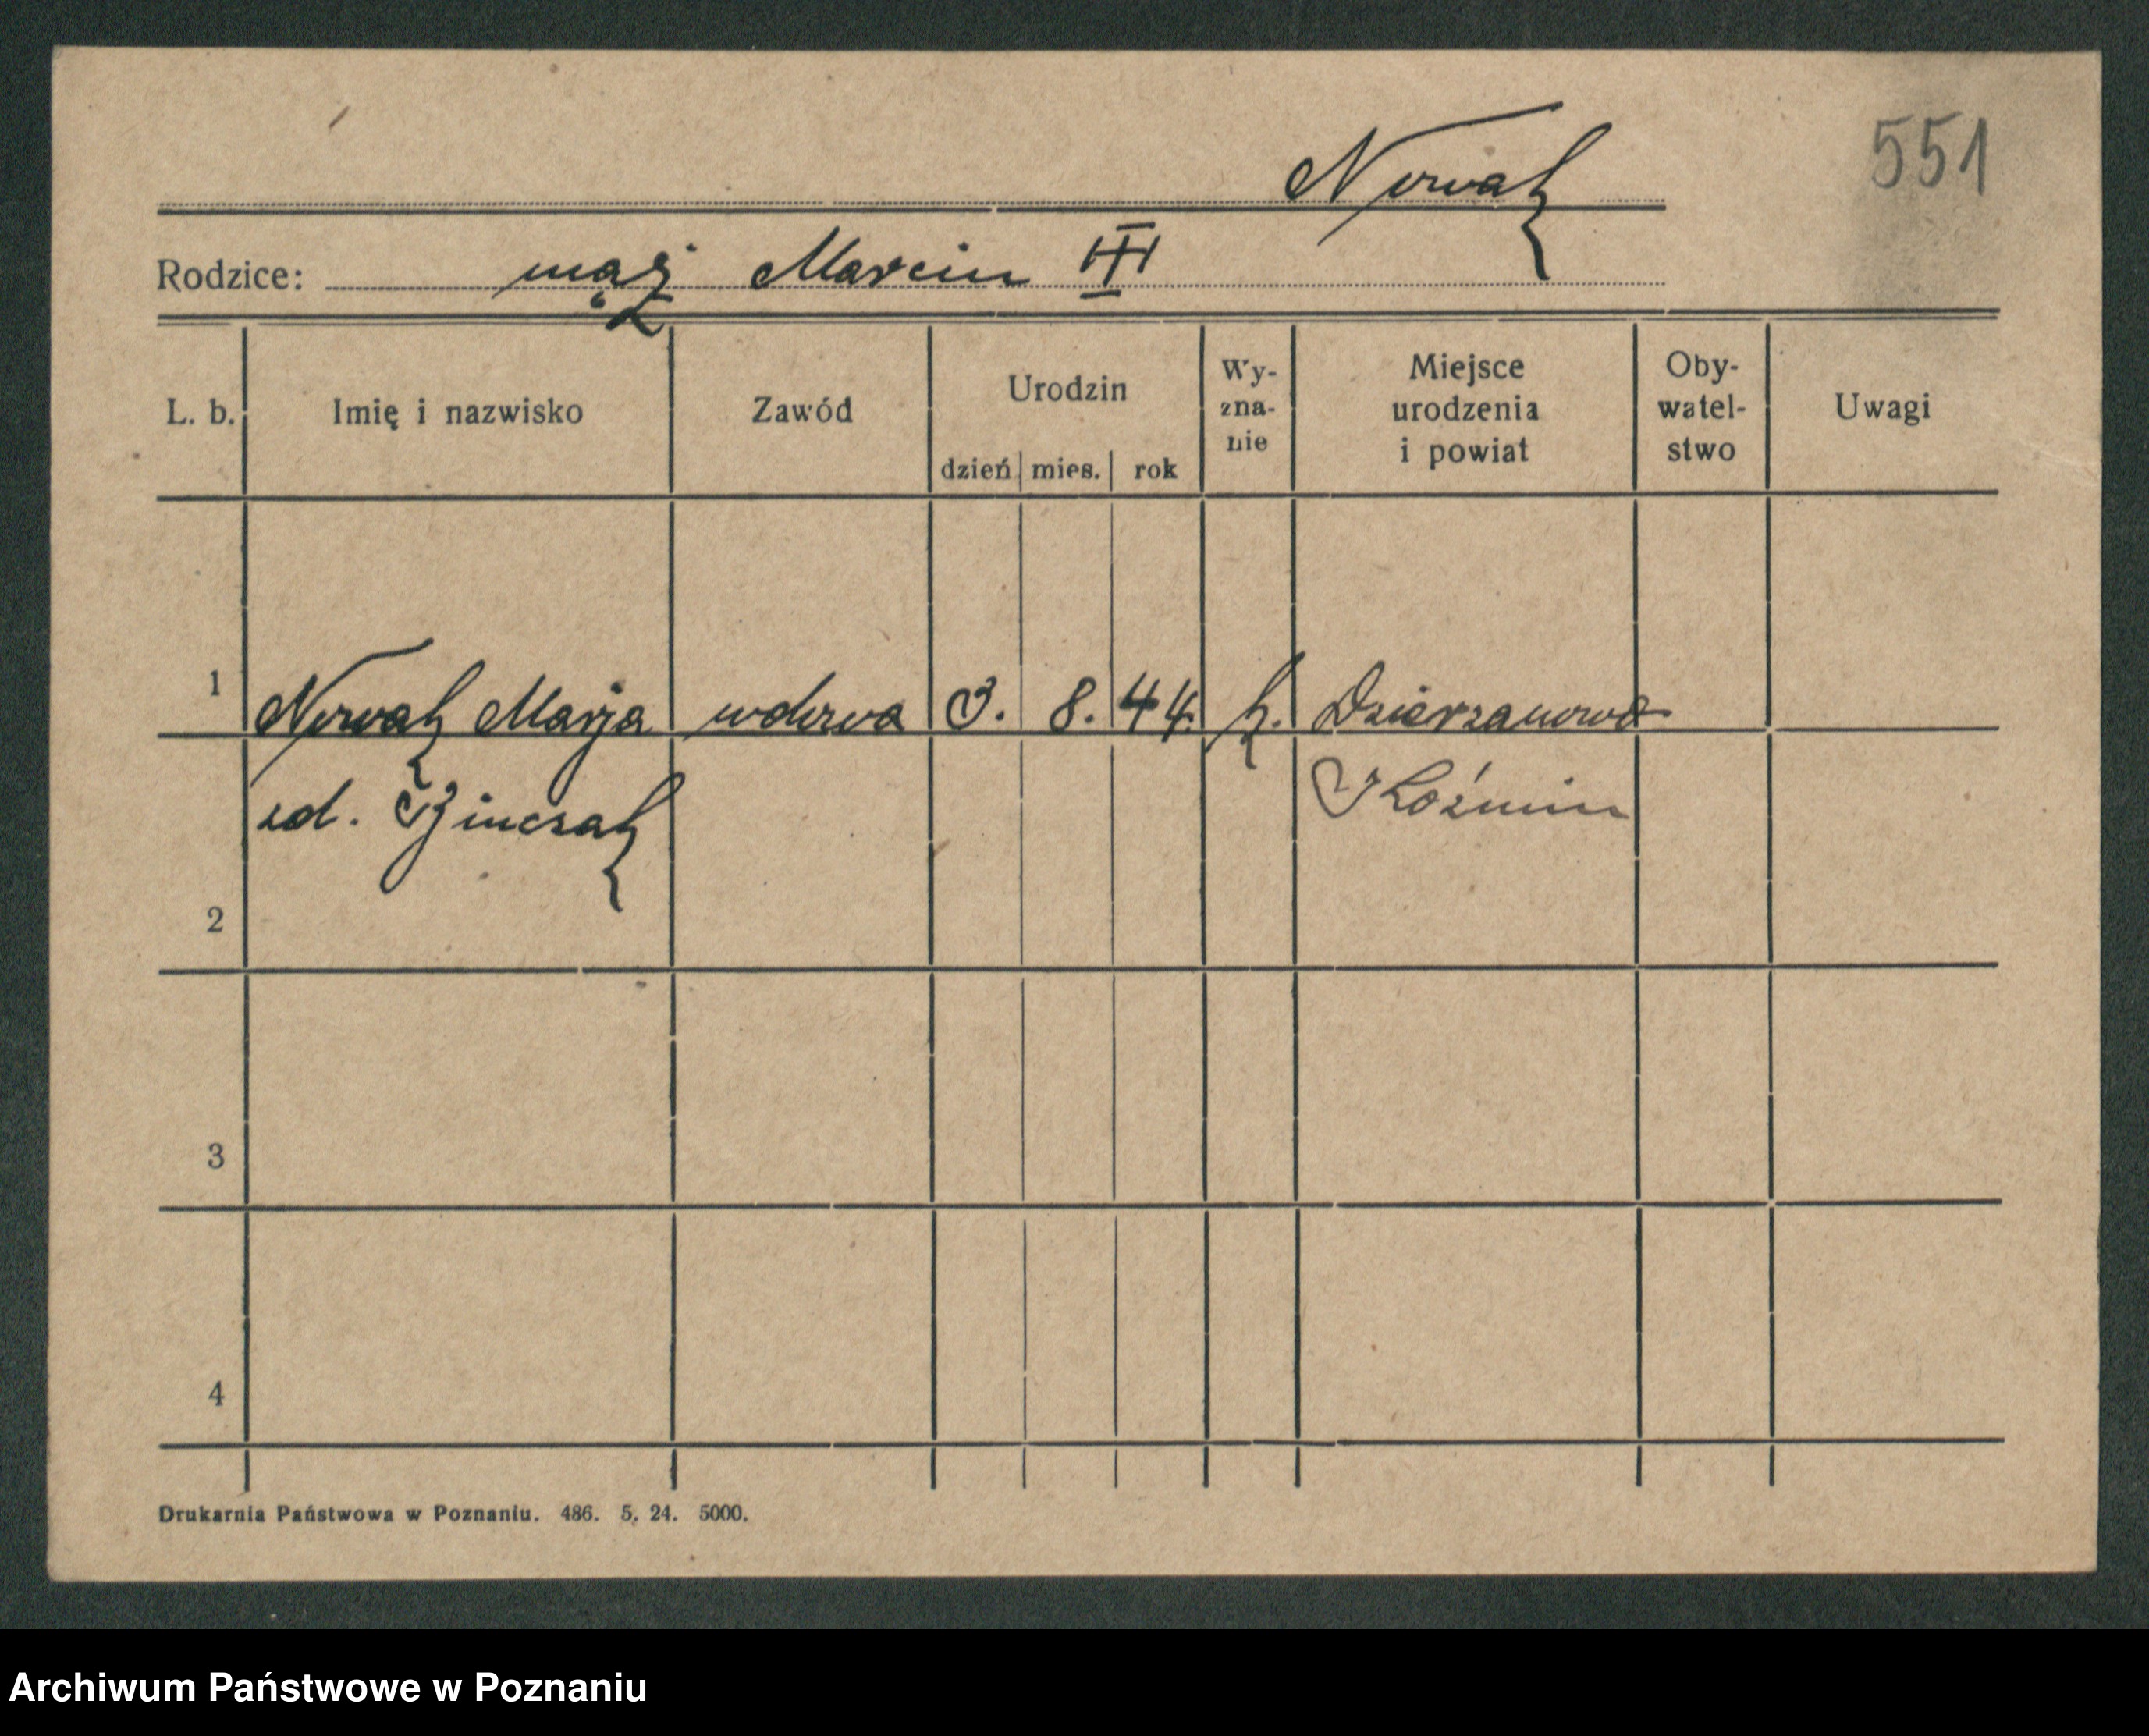 551
Nowak
Rodzice: mąż Marcin III
L. b. Imię i nazwisko Zawód Urodzin dzień mies. rok Wy-zna-nie Miejsce urodzenia i powiat Oby-watel-stwo Uwagi
1 Nowak Marja wdowa 3. 8. 44. k. Dzierzanowo
zd. Binczak Koźmin
2
3
4
Drukarnia Państwowa w Poznaniu. 486. 5. 24. 5000.
Archiwum Państwowe w Poznaniu